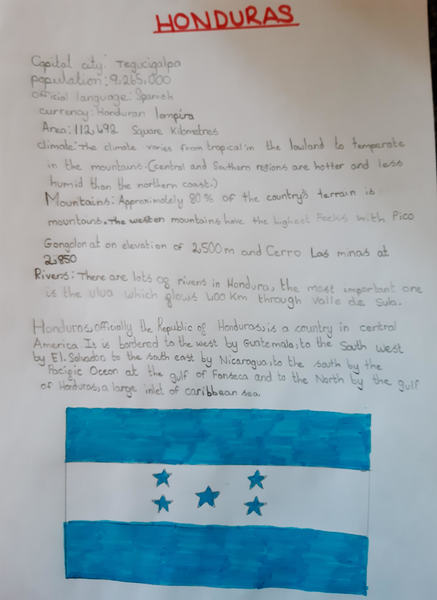 HONDURAS
Capital city: Tegucigalpa
population: 9,265,000
official language: Spanish
currency: Honduran lempira
Area: 112,492 Square Kilometres
climate: The climate varies from tropical in the lowland to temperate
in the mountains. (central and Southern regions are hotter and less
humid than the northern coast.)
Mountains: Approximately 80% of the country's terrain is
mountains. The western mountains have the highest Peeks with Pico
Gongolon at an elevation of 2500m and Cerro Las minas at
2,850
Rivers: There are lots of rivers in Hondura, the most important one
is the ulua which flows 400 Km through Valle de Sula.
Honduras, officially the Republic of Honduras, is a country in central
America It is bordered to the west by Guatemala, to the South west
by El Salvador to the south east by Nicaragua, to the south by the
Pacific Ocean at the gulf of Fonseca and to the North by the gulf
of Honduras, a large inlet of caribbean sea.